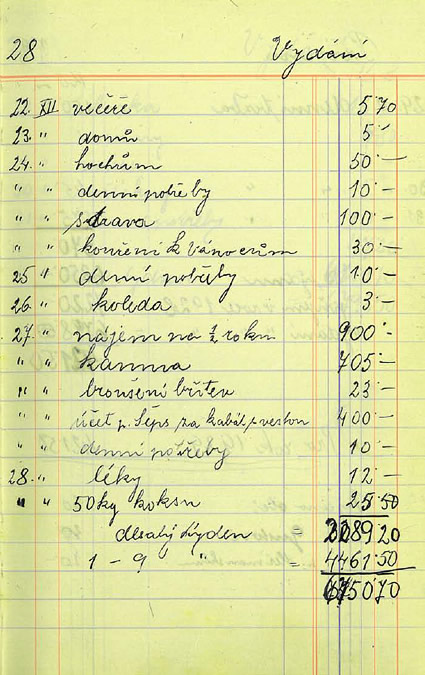 28 Vydání
22. XII večeře 5·70
23. " domů 5·-
24. " hochům 50·-
" " denní potřeby 10·-
" " strava 100·-
" " k Vánocům 30·-
25 " denní potřeby 10·-
26. " koleda 3·-
27. " nájem na ½ roku 900·-
" " kamna 705·-
" " broušení břitev 23·-
" " účet p. Šéps za kabát, veston 400·-
" " denní potřeby 10·-
28. " léky 12·-
" " 50 kg koksu 25·50
desatý týden = 89·20
1 - 9 " = 4461·50
50·70